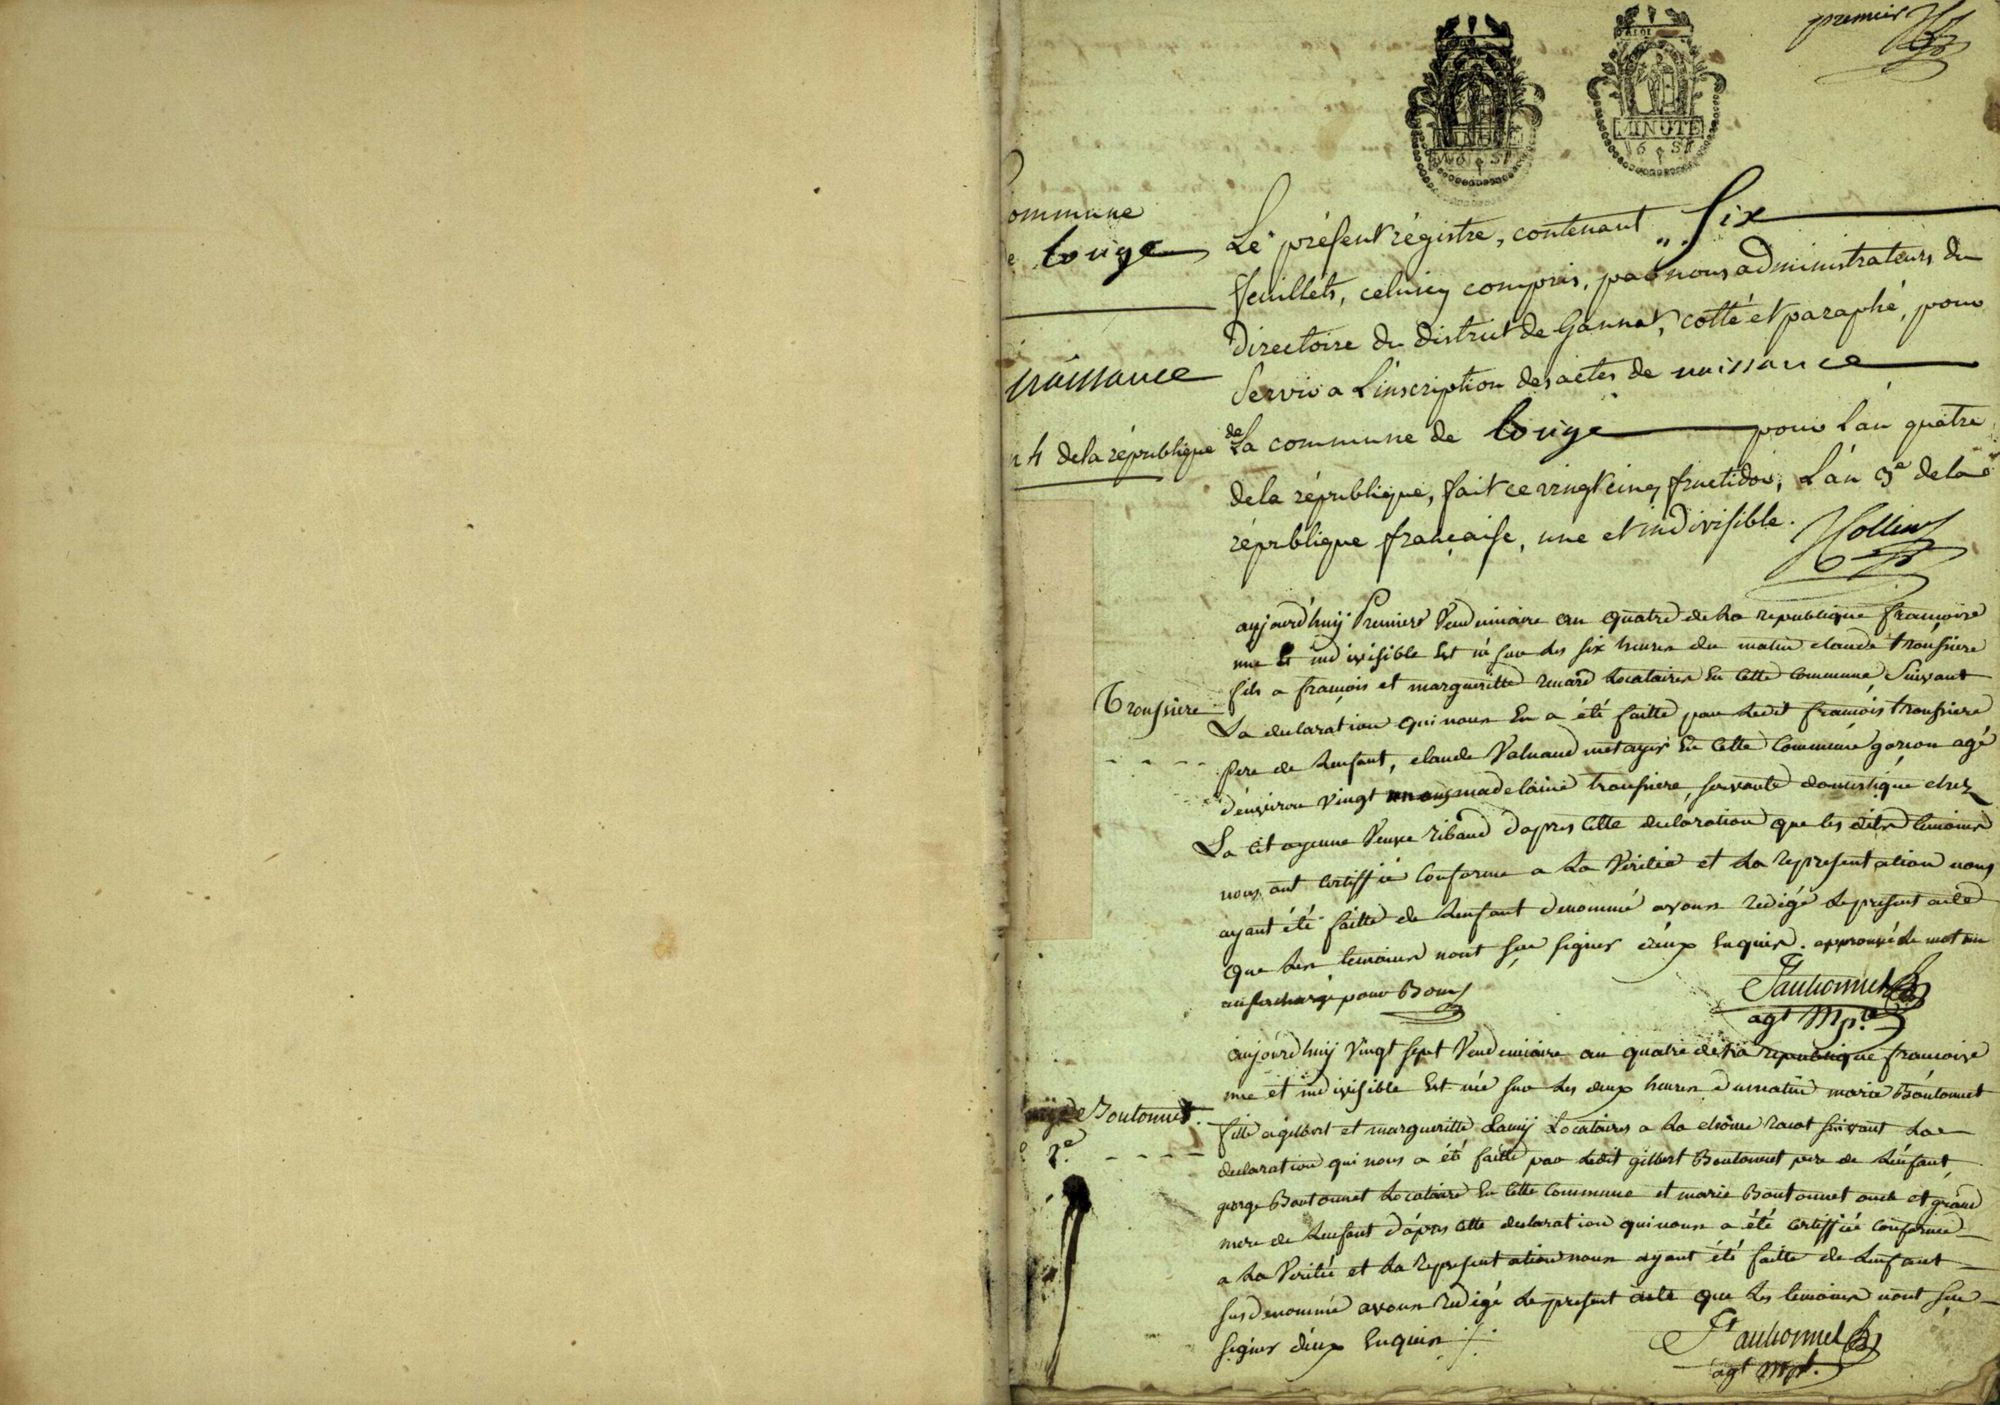 premier
MINUTE
MINUTE
6 S
ommune
e Louge
naissance
4 de la république
Le présent régistre, contenant Six
feuillets, celuicy compris, par nous administrateurs du
Directoire du district de Gannat, cotté et paraphé, pour
servir a L'inscription des actes de naissance
de La commune de Louge pour L'an quatre
de la république, fait ce vingt cinq fructidor, L'an 3e de la
république française, une et indivisible.
Trousiere
aujourd'huy Premier Vendemiaire an quatre de La republique francoise
une et indivisible Est né sur les six heures du matin claude trousiere
fils a francois et margueritte Locataires En Cette Commune Suivant
La declaration qui nous En a été faitte par Ledit francois trousiere
pere de Lenfant, claude metayer En Cette Commune garcon agé
d'environ vingt ans madelaine trousiere, servante domestique chez
La Citoyenne Veuve ribaud d'apres Cette declaration que les dits temoins
nous ont Certiffié Conforme a La Verité et La representation nous
ayant été faitte de Lenfant denommé avons redigé Le present acte
que Les temoins n'ont sçu signer d'eux Enquis. approuvé le mot
surchargé pour Bon
agt Mpal
Boutonnet.
2e
aujourd'huy Vingt sept Vendemiaire an quatre de la republique francoise
une et indivisible Est née sur Les deux heures du matin marie Boutonnet
fille a gilbert et margueritte Lamy Locataires a La suivant La
declaration qui nous a été faitte par Ledit gilbert Boutonnet pere de Lenfant
george Boutonnet Locataire En Cette Commune et marie Boutonnet oncle et grand
mere de Lenfant d'apres Cette declaration qui nous a été Certiffié Conforme
a La Verité et La representation nous ayant été faitte de Lenfant
susdenommé avons redigé Le present acte que Les temoins n'ont sçu
signer d'eux Enquis
agt mpal.